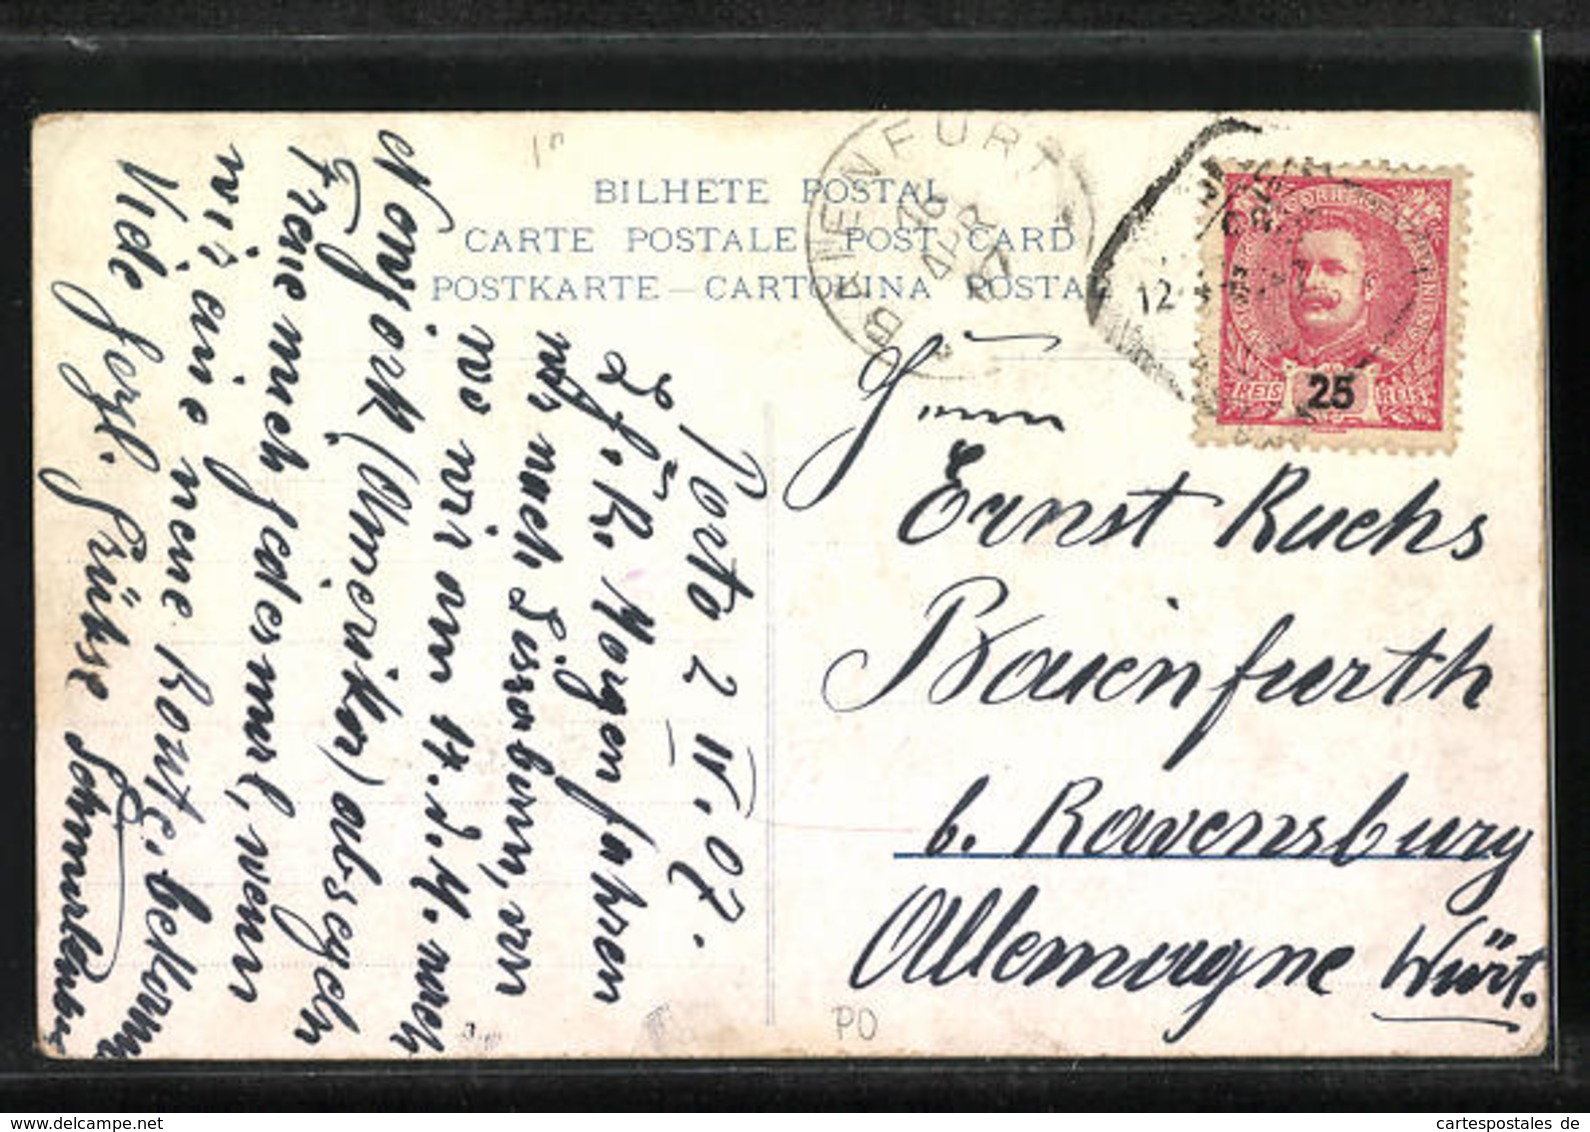 BILHETE POSTAL
CARTE POSTALE POST CARD
POSTKARTE — CARTOLINA POSTAL
BAIENFURT
16
APR
07
12
CORREIOS
REIS 25 REIS
Herrn
Ernst Ruchs
Baienfurth
b. Ravensburg
Allemagne Württ.
Porto 2 IV. 07.
L. f. R. Morgen fahren
wir nach Lissabon, von
wo wir am 17. d. M. nach
Newyork (Amerika) absegeln
Freue mich jedesmal, wenn
wir eine neue Route bekommen
Viele herzl. Grüsse
PO
cartespostales de
www.delcampe.net